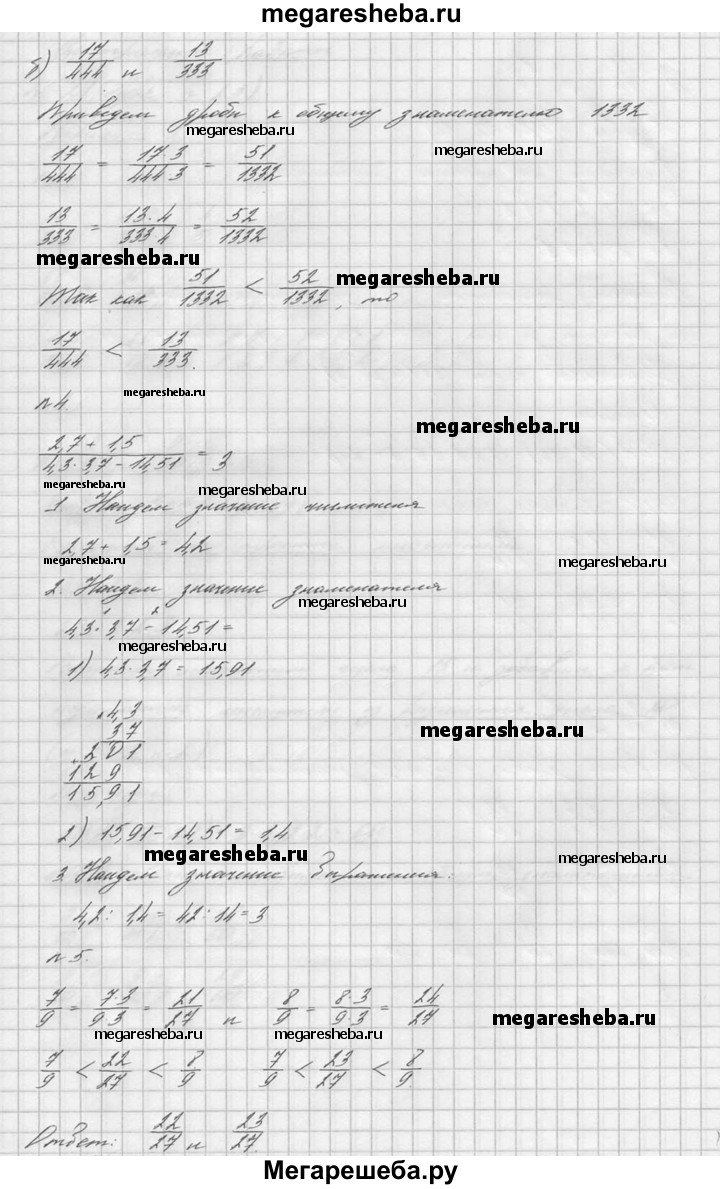 megaresheba.ru
б) 17/444 и 13/333
Приведем дроби к общему знаменателю 1332
megaresheba.ru
megaresheba.ru
17/444 = 17·3/444·3 = 51/1332
13/333 = 13·4/333·4 = 52/1332
megaresheba.ru
megaresheba.ru
Так как 51/1332 < 52/1332, то
17/444 < 13/333.
megaresheba.ru
№4
megaresheba.ru
2,7 + 1,5/4,3·3,7 - 14,51 = 3
megaresheba.ru
megaresheba.ru
1. Найдем значение числителя
2,7 + 1,5 = 4,2
megaresheba.ru
megaresheba.ru
2. Найдем значение знаменателя
megaresheba.ru
4,3·3,7 - 14,51 =
megaresheba.ru
1) 4,3·3,7 = 15,91
×4,3
3,7
megaresheba.ru
+301
129
15,91
2) 15,91 - 14,51 = 1,4
megaresheba.ru
megaresheba.ru
3. Найдем значение выражения:
4,2 : 1,4 = 42 : 14 = 3
№5.
7/9 = 7·3/9·3 = 21/27 и 8/9 = 8·3/9·3 = 24/27
megaresheba.ru
megaresheba.ru
megaresheba.ru
7/9 < 22/27 < 8/9 7/9 < 23/27 < 8/9.
Ответ: 22/27 и 23/27.
Мегарешеба.ру